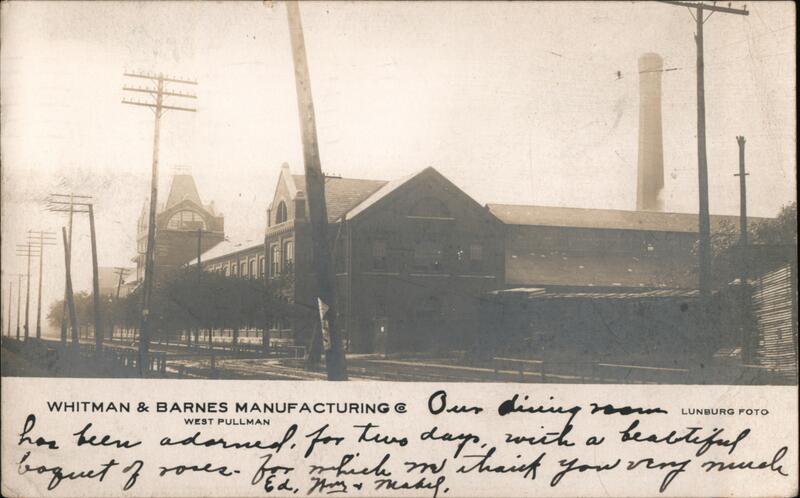 WHITMAN & BARNES MANUFACTURING Co
WEST PULLMAN
LUNBURG FOTO
Our dining room
has been adorned, for two days, with a beabtiful
boquet of roses - for which we thank you very much
Ed, & Mabel.